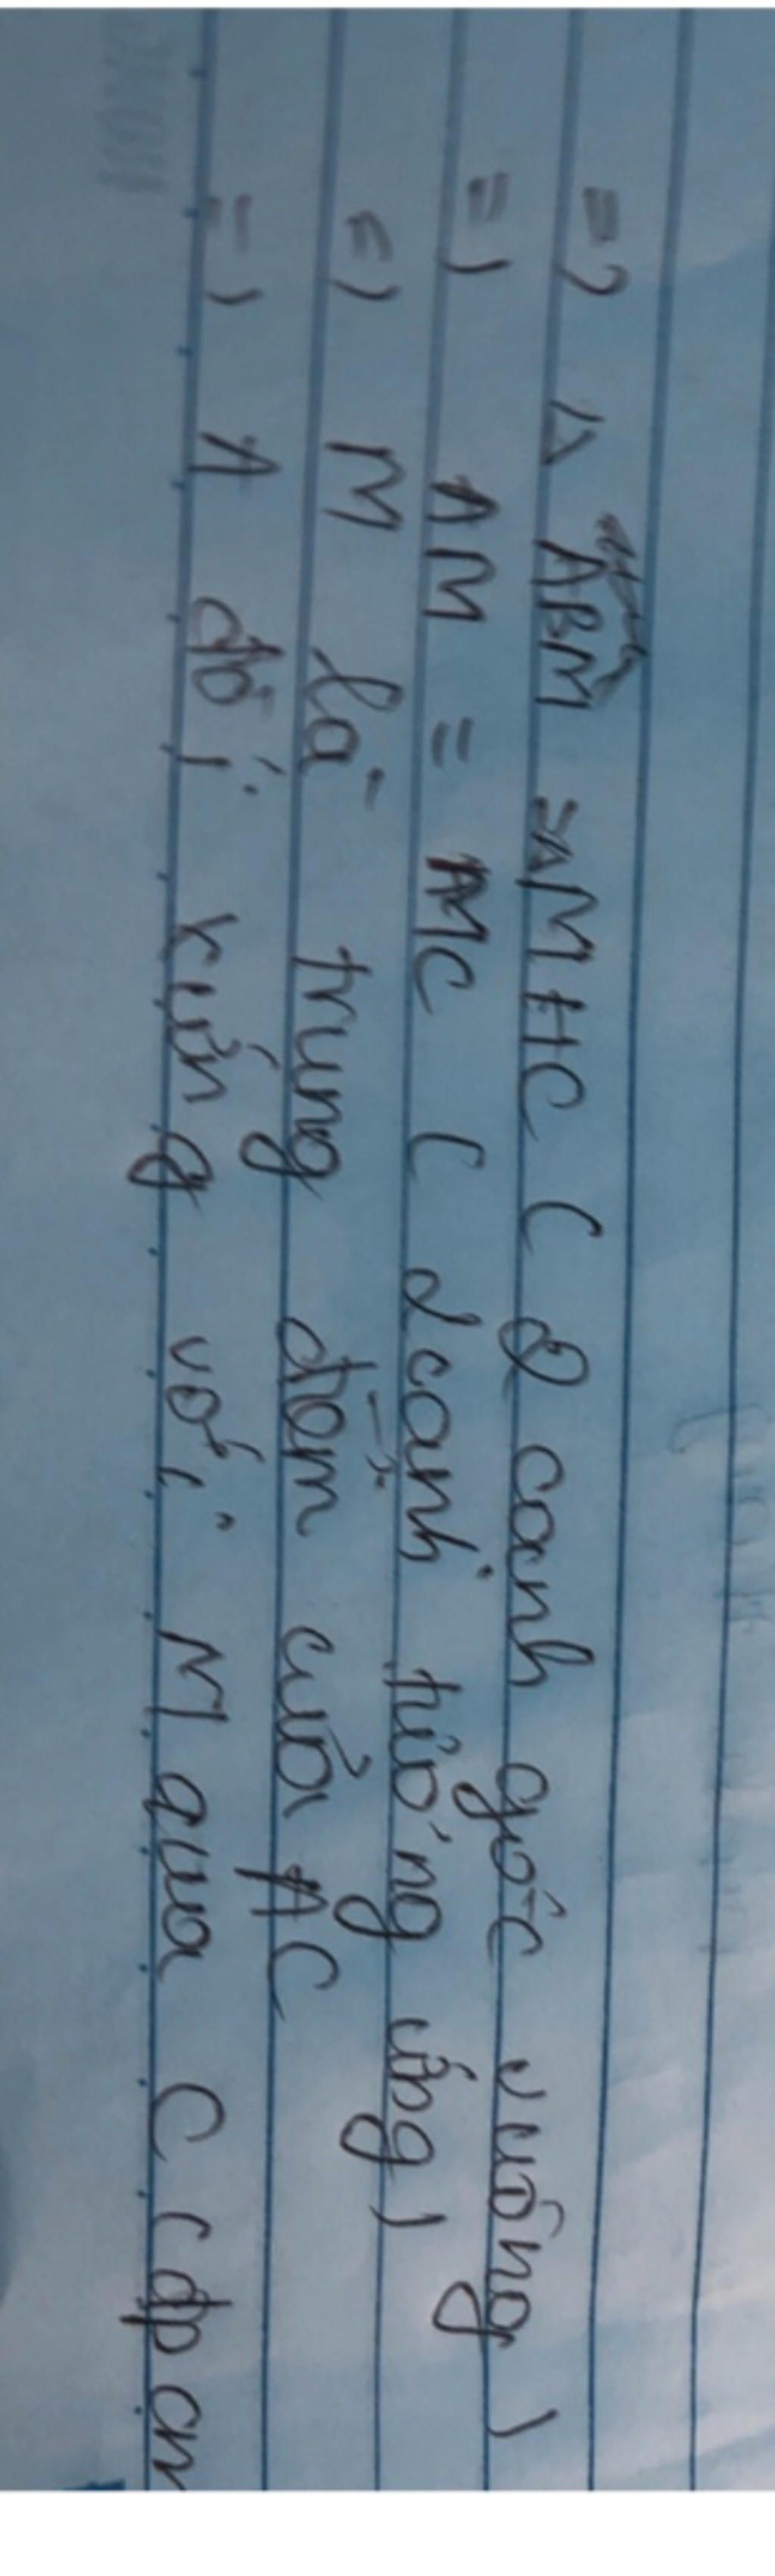 => Δ ABM = ΔMHC ( 2 cạnh góc vuông )
=) AM = MC ( 2 cạnh tương ứng )
=) M là trung điểm của AC
=) A đối xứng với M qua C ( đpcm